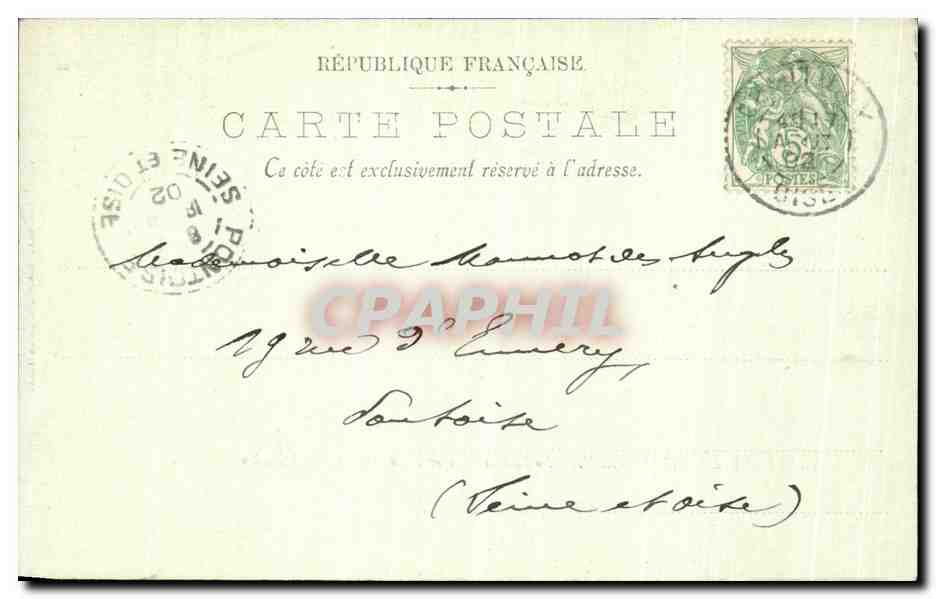 RÉPUBLIQUE FRANÇAISE
CARTE POSTALE
Ce côté est exclusivement réservé à l'adresse.
5
POSTES
OISE
PONTOISE
SEINE ET OISE
02
Mademoiselle
CPAPHIL
19 rue d'Ennery,
Pontoise
(Seine et oise)